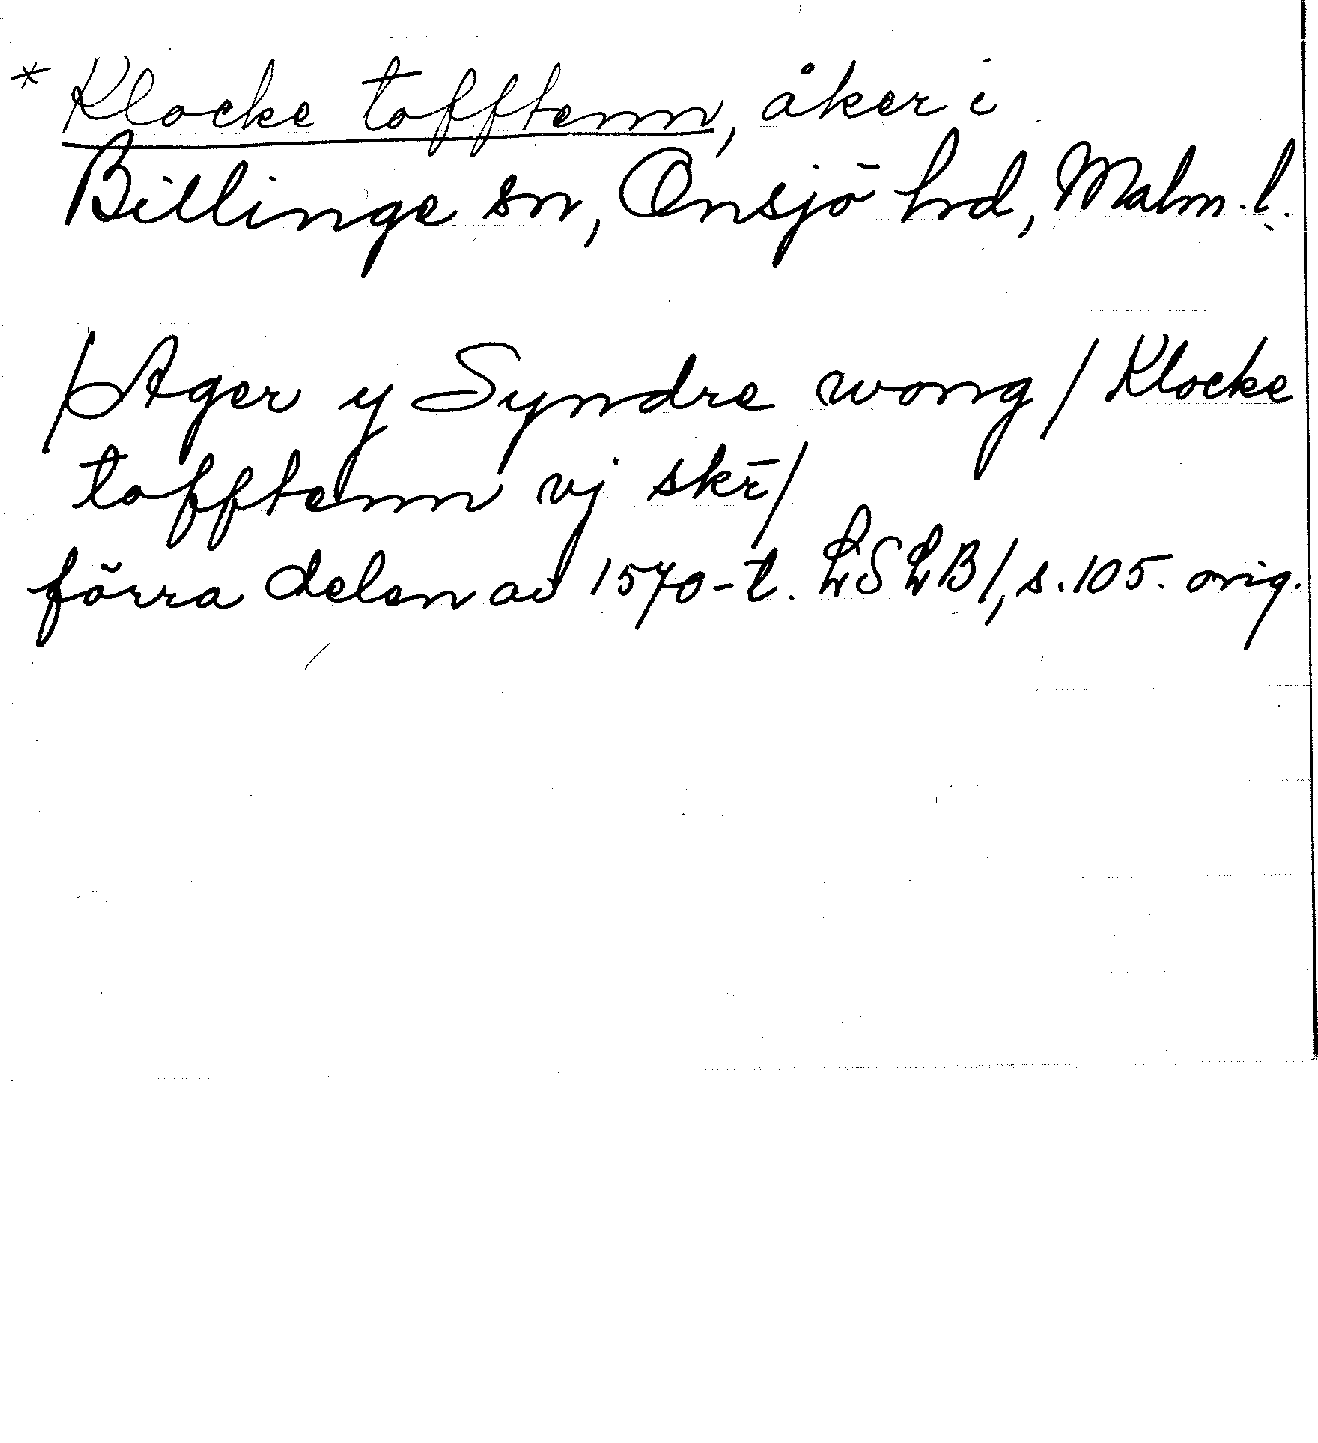 * Klocke tofftenn, åker i
Billinge sn, Onsjö hrd, Malm. l.
/Ager y Syndre wong/ Klocke
tofftenn vj skr̄/
förra delen av 1570-t. LSLB1, s. 105. orig.